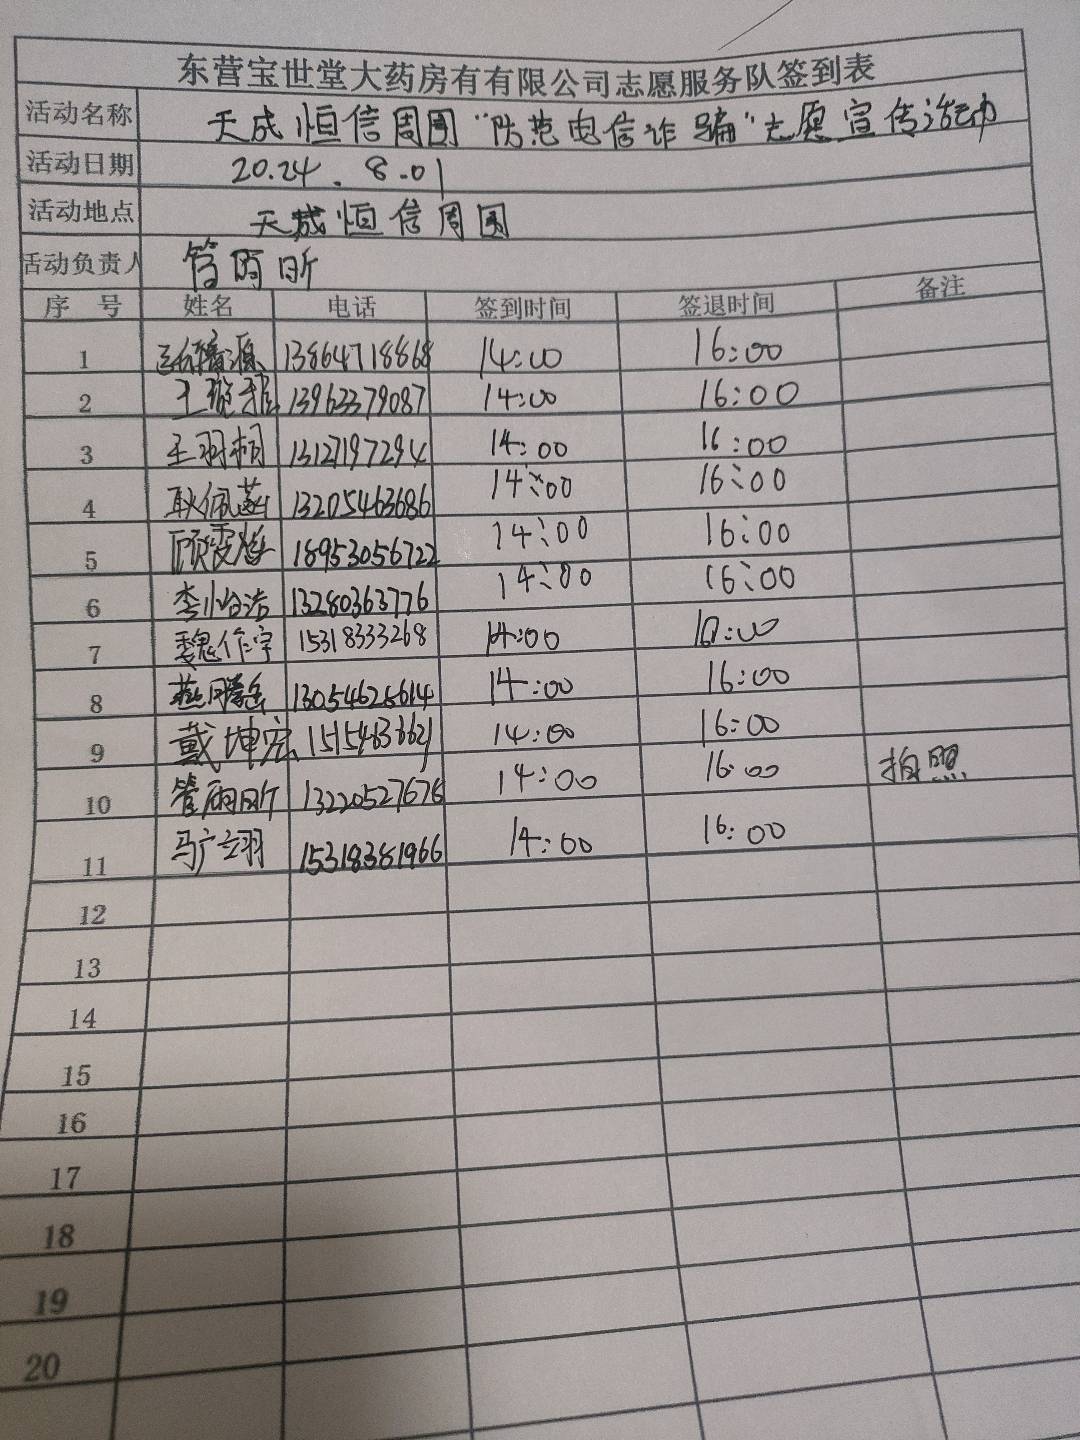 东营宝世堂大药房有有限公司志愿服务队签到表
活动名称 天成恒信周围“防范电信诈骗”志愿宣传活动
活动日期 2024.8.01
活动地点 天成恒信周围
活动负责人 管雨昕
序号 姓名 电话 签到时间 签退时间 备注
1 13864718868 14:00 16:00
2 13963379087 14:00 16:00
3 王羽桐 13127197294 14:00 16:00
4 耿佩菡 13205463686 14:00 16:00
5 顾雯 18953056722 14:00 16:00
6 李怡浩 13280363776 14:00 16:00
7 魏作宇 15318333268 14:00 16:00
8 燕腾岳 13054625614 14:00 16:00
9 戴坤宏 14:00 16:00
10 管雨昕 13220527676 14:00 16:00 拍照
11 马广翊 15318381966 14:00 16:00
12
13
14
15
16
17
18
19
20